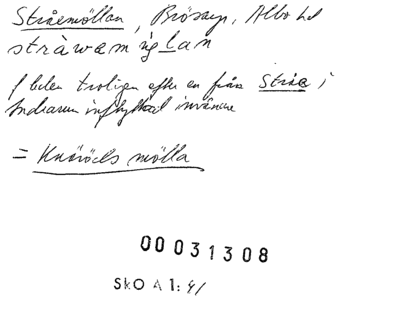 Stråemöllan, Brösarp, Albo hd
stràwæmöglan
f delen troligen efter en från Stråe i
Andrarum inflyttad invånare
= Knäröds mölla
00031308
SkO A 1: 4/